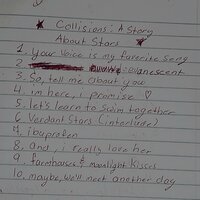 Collisions: A Story
About Stars
1. Your voice is my favorite song
2. evanescent
3. So, tell me about you
4. im here, i promise ♡
5. let's learn to swim together
6. Verdant Stars (interlude)
7. ibuprofen
8. and, i really love her
9. farmhouses & moonlight kisses
10. maybe, we'll meet another day